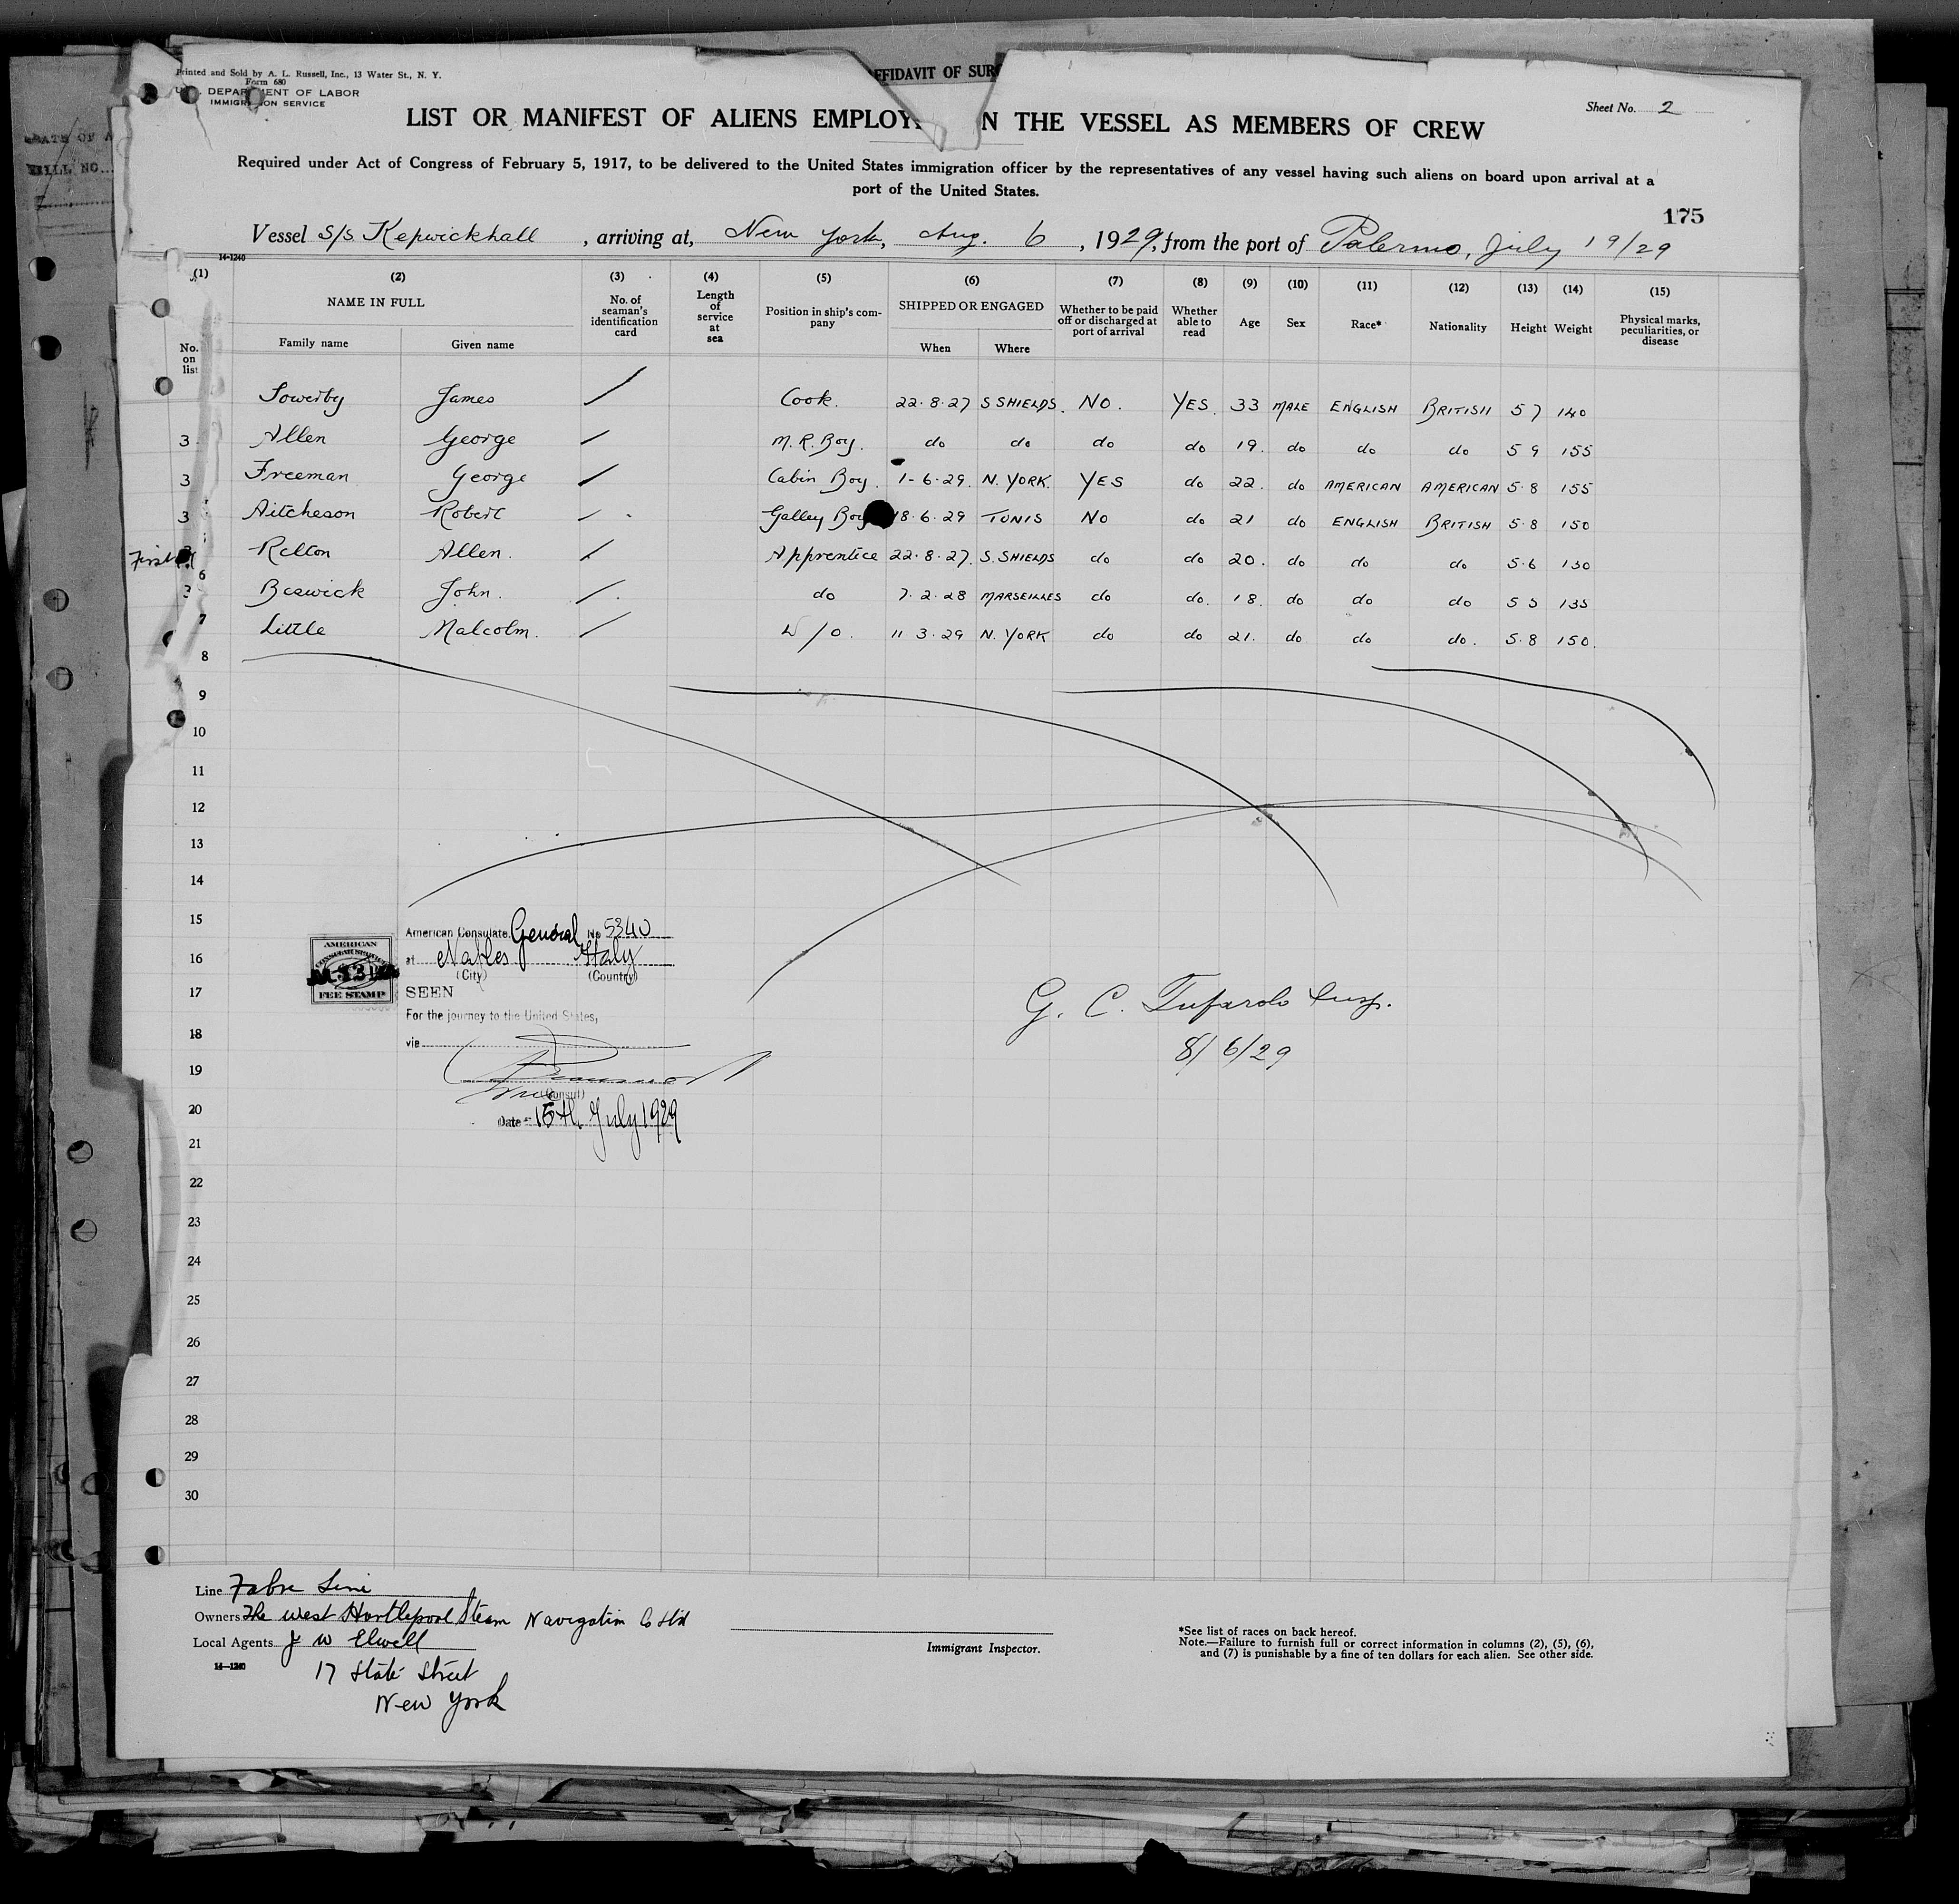 Printed and Sold by A. L. Russell, Inc., 13 Water St., N. Y.
Form 680
DEPARTMENT OF LABOR
IMMIGRATION SERVICE
FFIDAVIT OF SURG
Sheet No. 2
LIST OR MANIFEST OF ALIENS EMPLOY N THE VESSEL AS MEMBERS OF CREW
Required under Act of Congress of February 5, 1917, to be delivered to the United States immigration officer by the representatives of any vessel having such aliens on board upon arrival at a
port of the United States.
175
Vessel S/S Kepwickhall, arriving at, New York, Aug. 6, 1929, from the port of Palermo, July 19/29
14-1240
(1) (2) (3) (4) (5) (6) (7) (8) (9) (10) (11) (12) (13) (14) (15)
No. on list NAME IN FULL No. of seaman's identification card Length of service at sea Position in ship's company SHIPPED OR ENGAGED Whether to be paid off or discharged at port of arrival Whether able to read Age Sex Race* Nationality Height Weight Physical marks, peculiarities, or disease
Family name Given name When Where
Sowerby James / Cook. 22.8.27 S SHIELDS. NO. YES. 33 MALE ENGLISH BRITISH 5 7 140
3 Allen George / M. R. Boy. do do do do 19. do do do 5 9 155
3 Freeman George / Cabin Boy. 1-6.29. N. YORK. YES do 22. do AMERICAN AMERICAN 5.8 155
3 Aitcheson Robert / Galley Boy 18.6.29 TUNIS NO do 21 do ENGLISH BRITISH 5.8 150
First Relton Allen. / Apprentice 22.8.27. S. SHIELDS do do 20. do do do 5.6 130
6
3 Beswick John. / do 7.2.28 MARSEILLES do do. 18. do do do 5 5 135
7
Little Malcolm. / W/O. 11 3.29 N. YORK do do 21. do do do. 5.8 150.
8
9
10
11
12
13
14
15
16
17
18
19
20
21
22
23
24
25
26
27
28
29
30
AMERICAN
CONSULAR SERVICE
FEE STAMP
American Consulate General No 5340
at Naples Italy
(City) (Country)
SEEN
For the journey to the United States,
via
(Consul)
Date 15th July 1929
G. C. Tufarolo Insp.
8/6/29
Line Fabre Line
Owners The West Hartlepool Steam Navigation Co Ltd
Local Agents J W Elwell
14-1240
17 State Street
New York
Immigrant Inspector.
*See list of races on back hereof.
Note.—Failure to furnish full or correct information in columns (2), (5), (6),
and (7) is punishable by a fine of ten dollars for each alien. See other side.